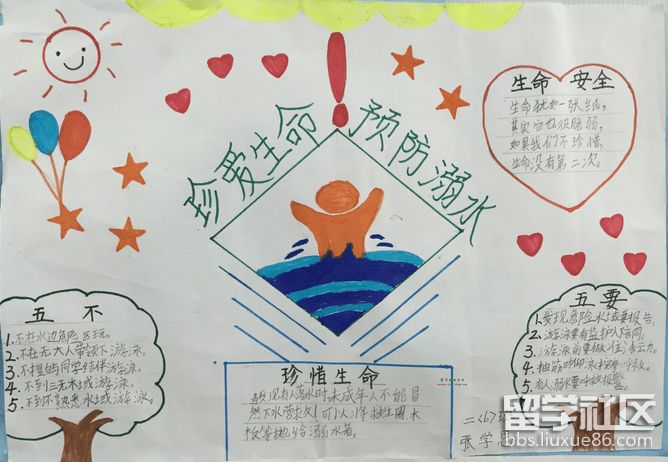 珍爱生命
预防溺水
生命 安全
生命犹如一张纸,
其实它也很脆弱,
如果我们不珍惜,
生命没有第二次。
五 不
1.不在水边危险区玩。
2.不在无大人带领下游泳。
3.不擅自与同学结伴游泳。
4.不到三无水域游泳。
5.不到不熟悉水域游泳。
五要
1.发现危险水域要报告。
2.游泳要有监护人陪同。
3.游泳前要做准备活动。
4.抽筋时仰泳
5.有人溺水要呼救报警。
珍惜生命
发现有人落水时未成年人不能冒
然下水营救 可以将救生圈木
板等抛给溺水者。
二(6)班
张学思
留学社区
bbs.liuxue86.com